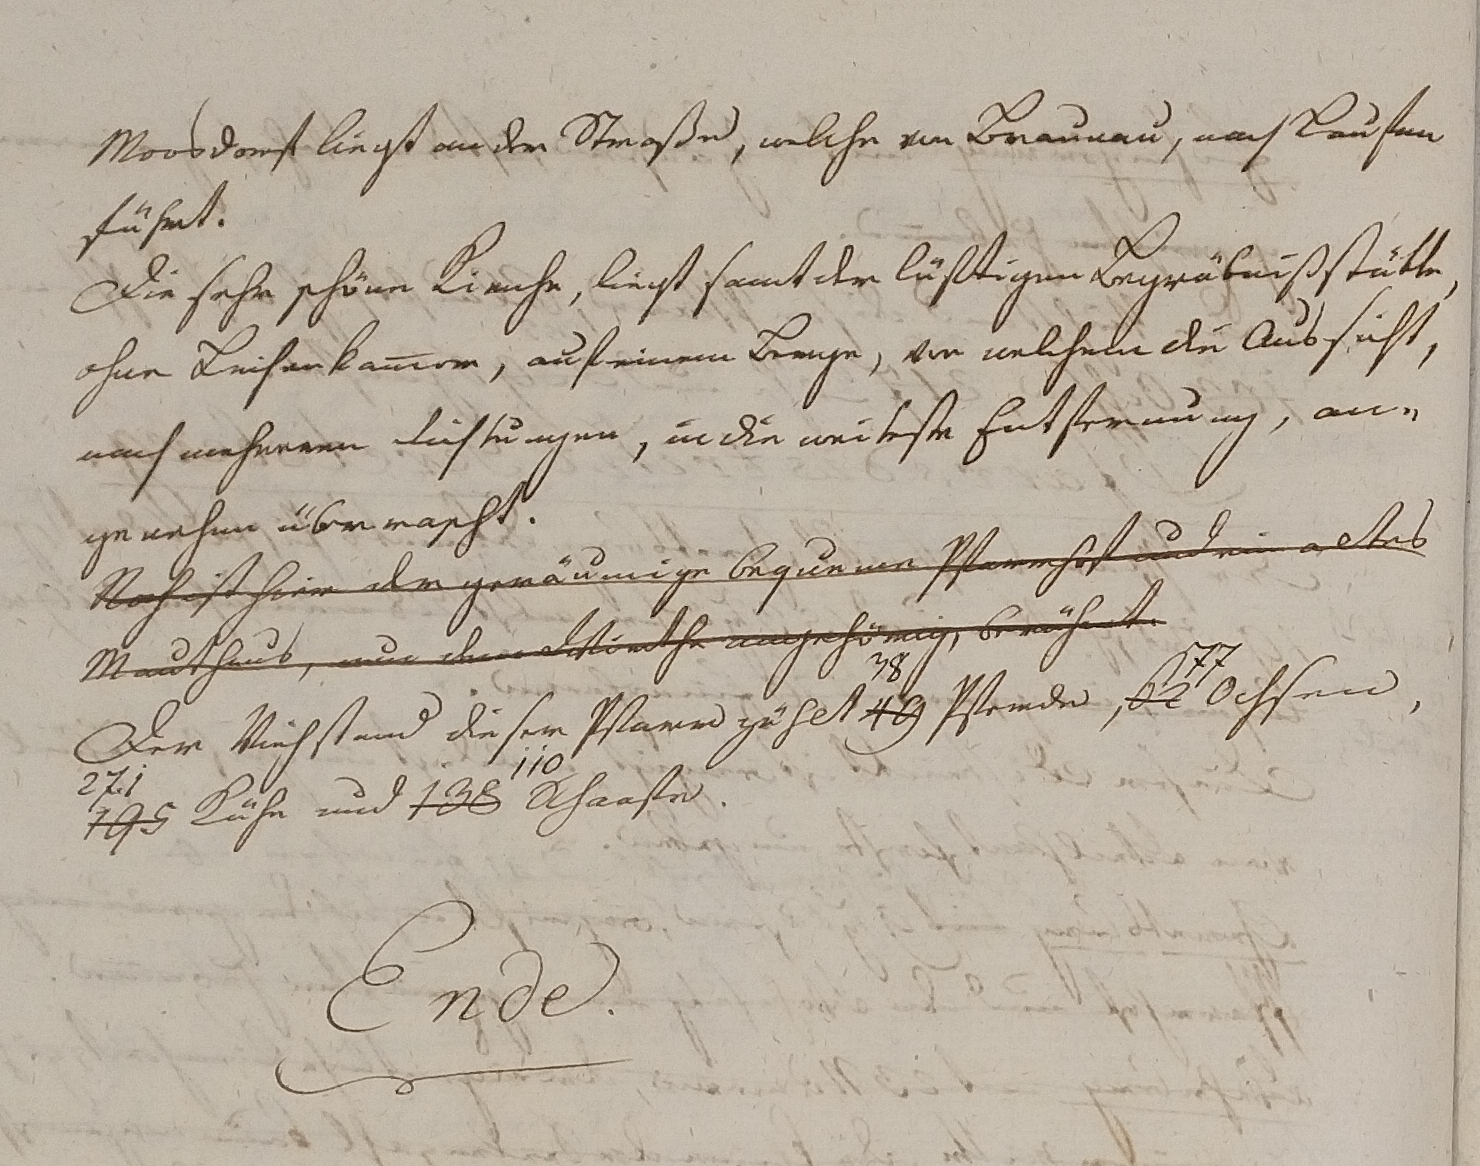 Moosdorf liegt an der Straße, welche von Braunau, nach Laufen
führt.
Die sehr schöne Kirche, liegt samt der lüftigen Begräbnißstätte,
ohne Leichenkam̅er, auf einem Berge, von welchem die Aussicht,
nach mehreren Richtungen, in die weiteste Entfernung, an-
genehm überrascht.
Noch ist hier der geräumige bequeme Pfarrhof und ein altes
Mauthaus, nun dem Wirthe angehörig, berühmt.
38 577
Der Viehstand dieser Pfarre zählt 49 Pferde, 52 Ochsen,
271 110
195 Kühe und 138 Schaafe.
Ende.